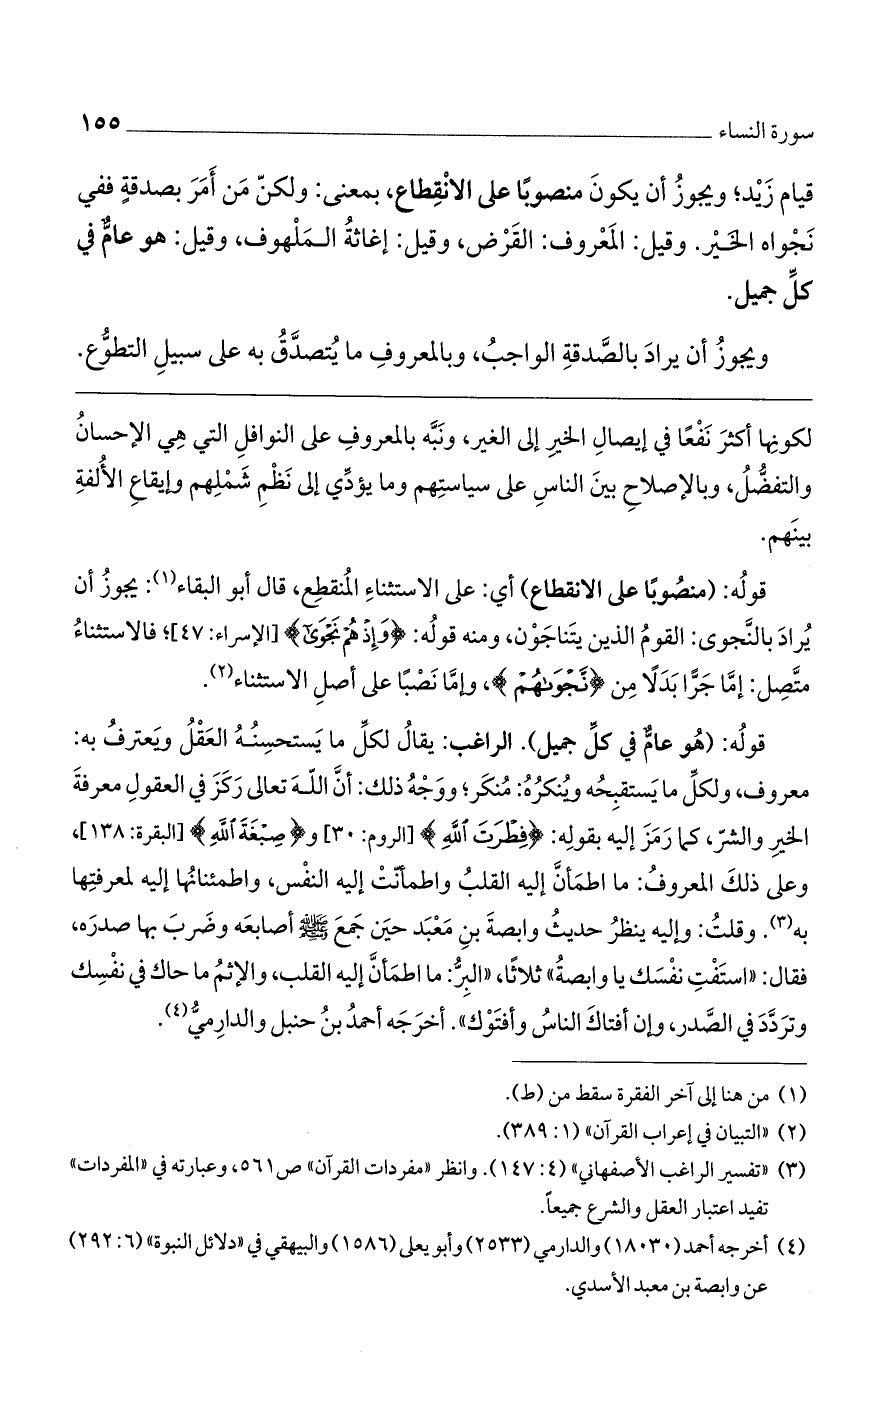 سورة النساء ١٥٥
قيام زَيْد؛ ويجوزُ أن يكونَ منصوبًا على الانْقِطاع، بمعنى: ولكنّ مَن أَمَرَ بصدقةٍ ففي
نَجْواه الخَيْر. وقيل: المَعْروف: القَرْض، وقيل: إغاثةُ الـمَلْهوف، وقيل: هو عامٌّ في
كلِّ جميل.
ويجوزُ أن يرادَ بالصَّدقةِ الواجبُ، وبالمعروفِ ما يُتصدَّقُ به على سبيلِ التطوُّع.
لكونِها أكثرَ نَفْعًا في إيصالِ الخيرِ إلى الغير، ونَبَّه بالمعروفِ على النوافلِ التي هِي الإحسانُ
والتفضُّلُ، وبالإصلاحِ بينَ الناسِ على سياستِهم وما يؤدِّي إلى نَظْمِ شَمْلِهم وإيقاعِ الأُلفةِ
بينَهم.
قولُه: (منصُوبًا على الانقطاع) أي: على الاستثناءِ المُنقطِع، قال أبو البقاء(١): يجوزُ أن
يُرادَ بالنَّجوى: القومُ الذين يتَناجَوْن، ومنه قولُه: ﴿وَإِذْ هُمْ نَجْوَىٰٓ﴾ [الإسراء: ٤٧]؛ فالاستثناءُ
متَّصِل: إمَّا جَرًّا بَدَلًا مِن ﴿نَّجْوَىٰهُمْ﴾، وإمَّا نَصْبًا على أصلِ الاستثناء(٢).
قولُه: (هُو عامٌّ في كلِّ جميل). الراغب: يقالُ لكلِّ ما يَستحسِنُهُ العَقْلُ ويَعترفُ به:
معروف، ولكلِّ ما يَستقبِحُه ويُنكرُهُ: مُنكَر؛ ووَجْهُ ذلك: أنَّ اللّهَ تعالى رَكَزَ في العقولِ معرفةَ
الخيرِ والشرّ، كما رَمَزَ إليه بقولِه: ﴿فِطْرَتَ ٱللَّهِ﴾ [الروم: ٣٠] و﴿صِبْغَةَ ٱللَّهِ﴾ [البقرة: ١٣٨]،
وعلى ذلكَ المعروفُ: ما اطمَأنَّ إليه القلبُ واطمأنّتْ إليه النفْس، واطمئنانُها إليه لمعرفتِها
به(٣). وقلتُ: وإليه ينظرُ حديثُ وابصةَ بنِ مَعْبَد حينَ جَمعَ ﷺ أصابعَه وضَربَ بها صدرَه،
فقال: «استَفْتِ نفْسَك يا وابصةُ» ثلاثًا، «البِرُّ: ما اطمَأنَّ إليه القلب، والإثمُ ما حاك في نفْسِك
وترَدَّدَ في الصَّدر، وإن أفتاكَ الناسُ وأفتَوْك». أخرَجَه أحمدُ بنُ حنبل والدارِميُّ(٤).
(١) من هنا إلى آخر الفقرة سقط من (ط).
(٢) «التبيان في إعراب القرآن» (١: ٣٨٩).
(٣) «تفسير الراغب الأصفهاني» (٤: ١٤٧). وانظر «مفردات القرآن» ص٥٦١، وعبارته في «المفردات»
تفيد اعتبار العقل والشرع جميعاً.
(٤) أخرجه أحمد (١٨٠٣٠) والدارمي (٢٥٣٣) وأبو يعلى (١٥٨٦) والبيهقي في «دلائل النبوة» (٦: ٢٩٢)
عن وابصة بن معبد الأسدي.